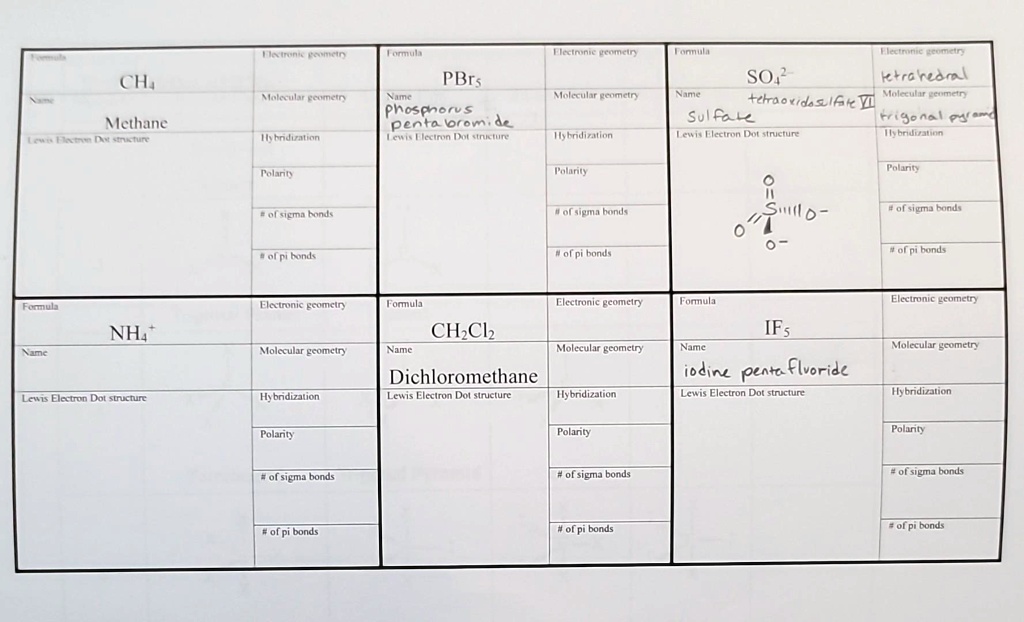 Formula
CH₄
Name
Methane
Lewis Electron Dot structure
Electronic geometry
Molecular geometry
Hybridization
Polarity
# of sigma bonds
# of pi bonds
Formula
PBr₅
Name
phosphorus
pentabromide
Lewis Electron Dot structure
Electronic geometry
Molecular geometry
Hybridization
Polarity
# of sigma bonds
# of pi bonds
Formula
SO₄²⁻
Name
tetraoxidosulfate VI
Sulfate
Lewis Electron Dot structure
O
S O-
O
O-
Electronic geometry
tetrahedral
Molecular geometry
trigonal pyramid
Hybridization
Polarity
# of sigma bonds
# of pi bonds
Formula
NH₄⁺
Name
Lewis Electron Dot structure
Electronic geometry
Molecular geometry
Hybridization
Polarity
# of sigma bonds
# of pi bonds
Formula
CH₂Cl₂
Name
Dichloromethane
Lewis Electron Dot structure
Electronic geometry
Molecular geometry
Hybridization
Polarity
# of sigma bonds
# of pi bonds
Formula
IF₅
Name
iodine pentafluoride
Lewis Electron Dot structure
Electronic geometry
Molecular geometry
Hybridization
Polarity
# of sigma bonds
# of pi bonds